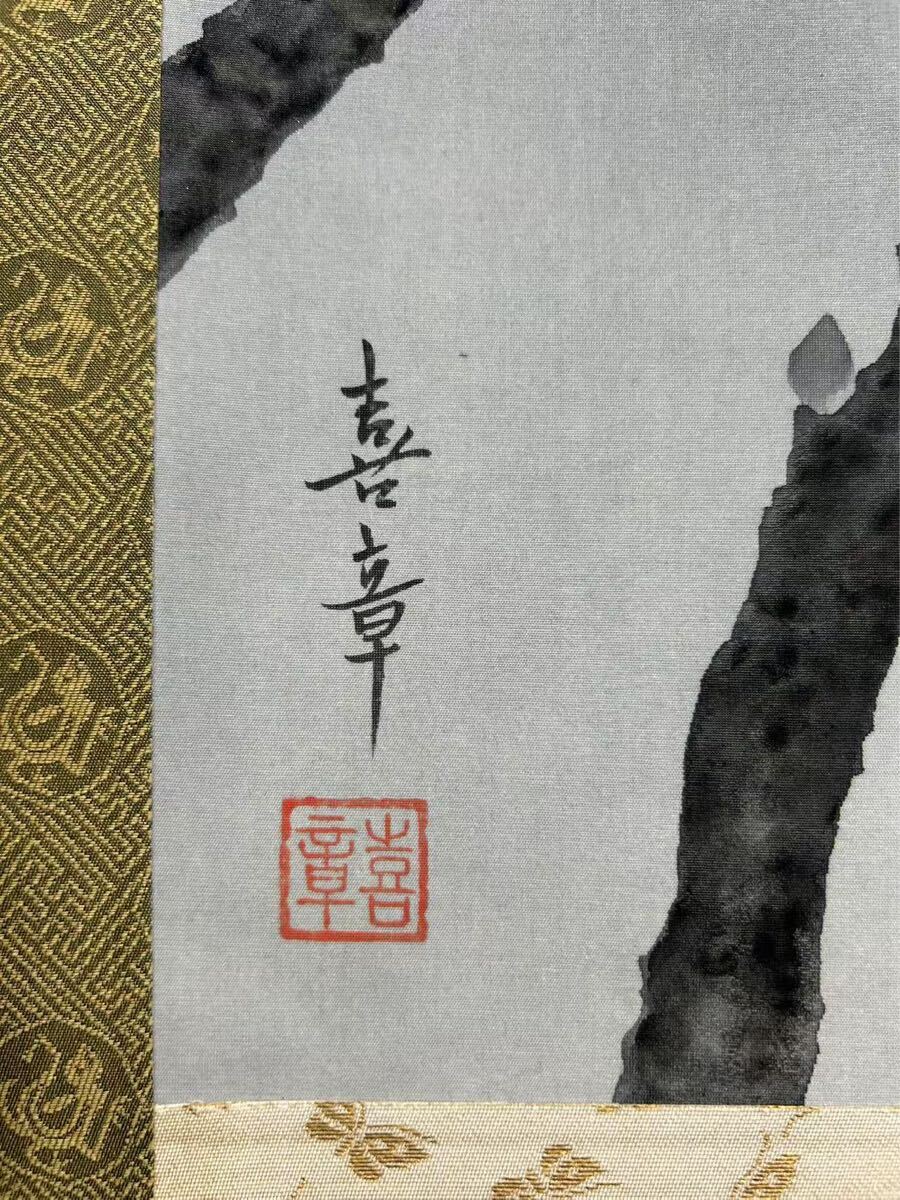 喜章
喜章